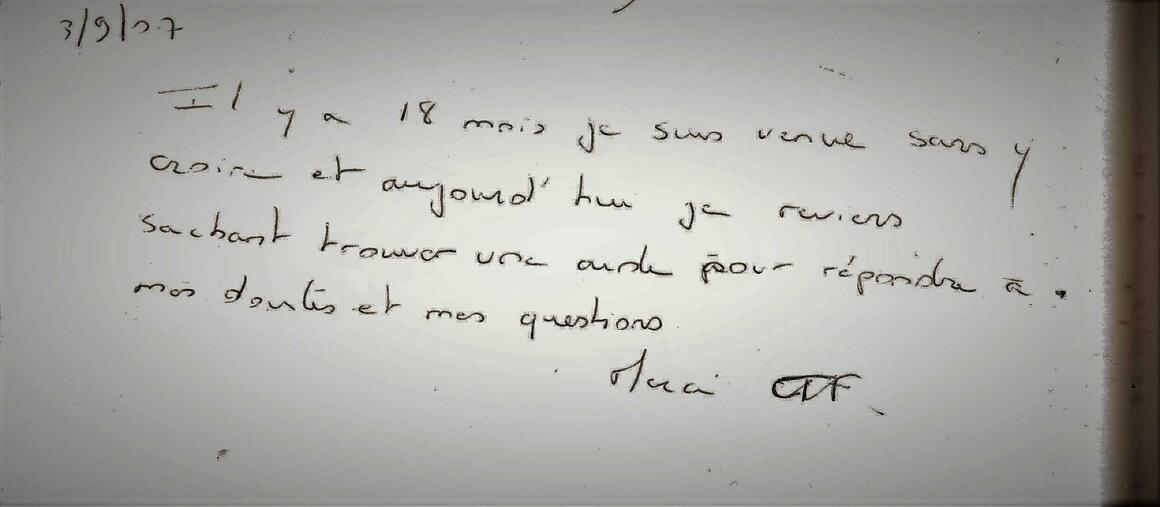 3/9/07
Il y a 18 mois je suis venue sans y
croire et aujourd'hui je reviens
sachant trouver une aide pour répondre à
mes doutes et mes questions
Merci